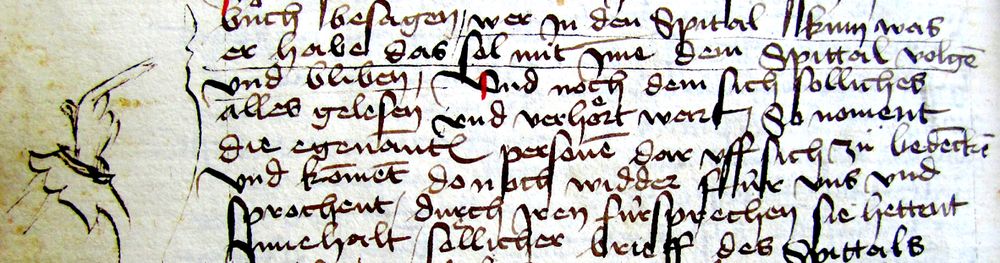 bůch besagen / wer in den Spital kum was
er habe das sol mit ime dem Spittal volgē
vnd bliben / Und noch dem sich solliches
alles gelesen vnd verhört wart / So noment
die egenantē personē dar vff sich zů bedēckē
vnd komēt do noch widder fur vns vnd
sprochent / durch iren fürsprechen sie hettent
Innehalt söllicher brieff des Spittals